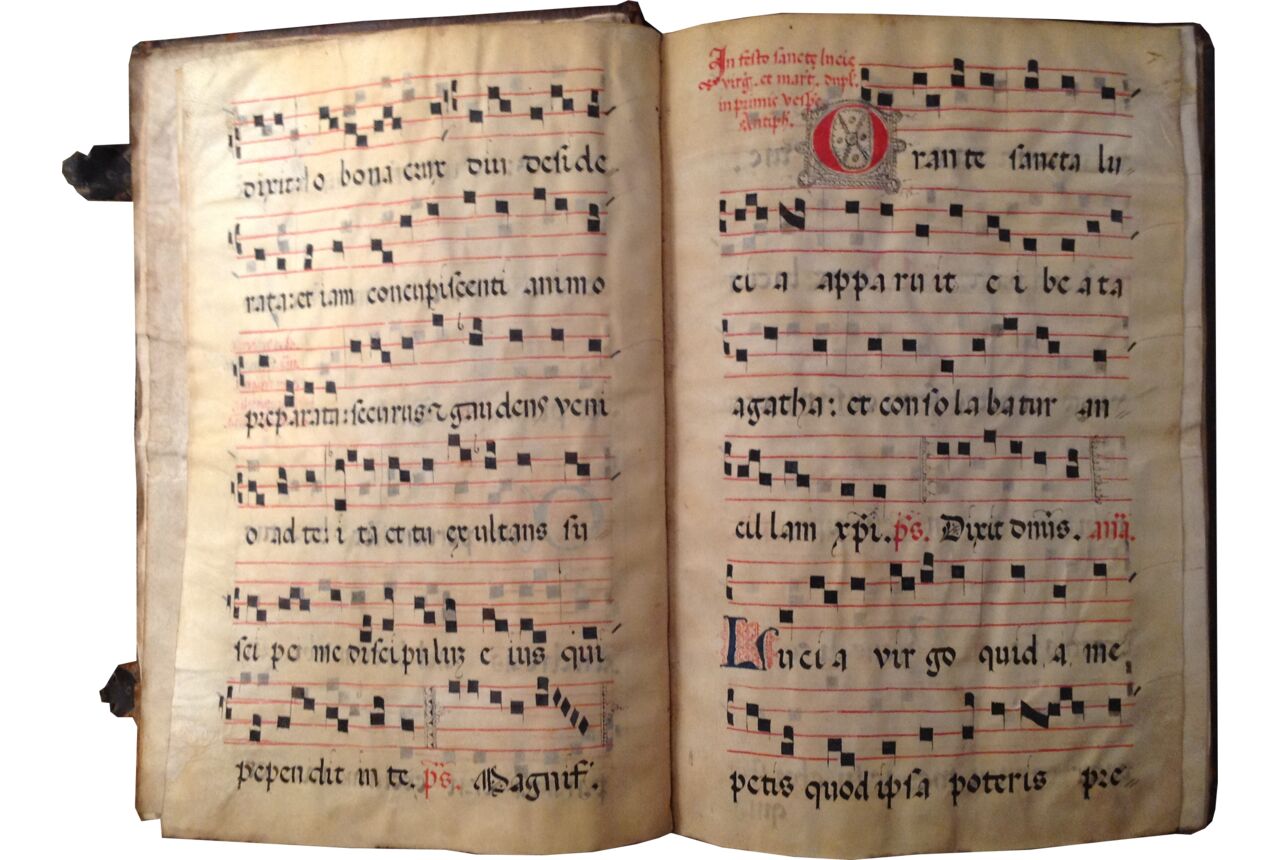 dixit: o bona crux diu deside
rata: et iam concupiscenti animo
preparata: securus ⁊ gaudens veni
o ad te: i ta et tu ex ultans su
sci pe me discipuluz e ius qui
pepen dit in te. ps. Magnif.
In festo sancte lucie
virg. et mart. dupl.
in primis vesp.
antiph.
O ran te sancta lu
ci a appa ru it e i be a ta
agatha: et con so la ba tur an
cil lam xpi. ps. Dixit dnus. aña.
Lucia vir go quid a me
petis quod ipsa poteris pre